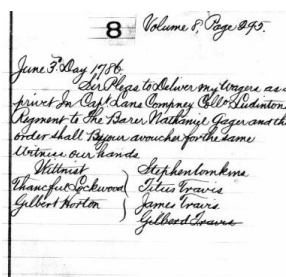 8 Volume 8, Page 295.
June 3d Day 1786
Sir Pleas to Deliver my Wagers as a
privet In Capt Lane Compney Coll Ludinton
Regment to The Barer Nathaniel Gager and th
order shall By your avoucher for the same
Witness our hands
Wittnist Stephen Tomkens
Thancful Lockwood Titus Travis
Gilbert Horton James Travis
Gilberd Travis